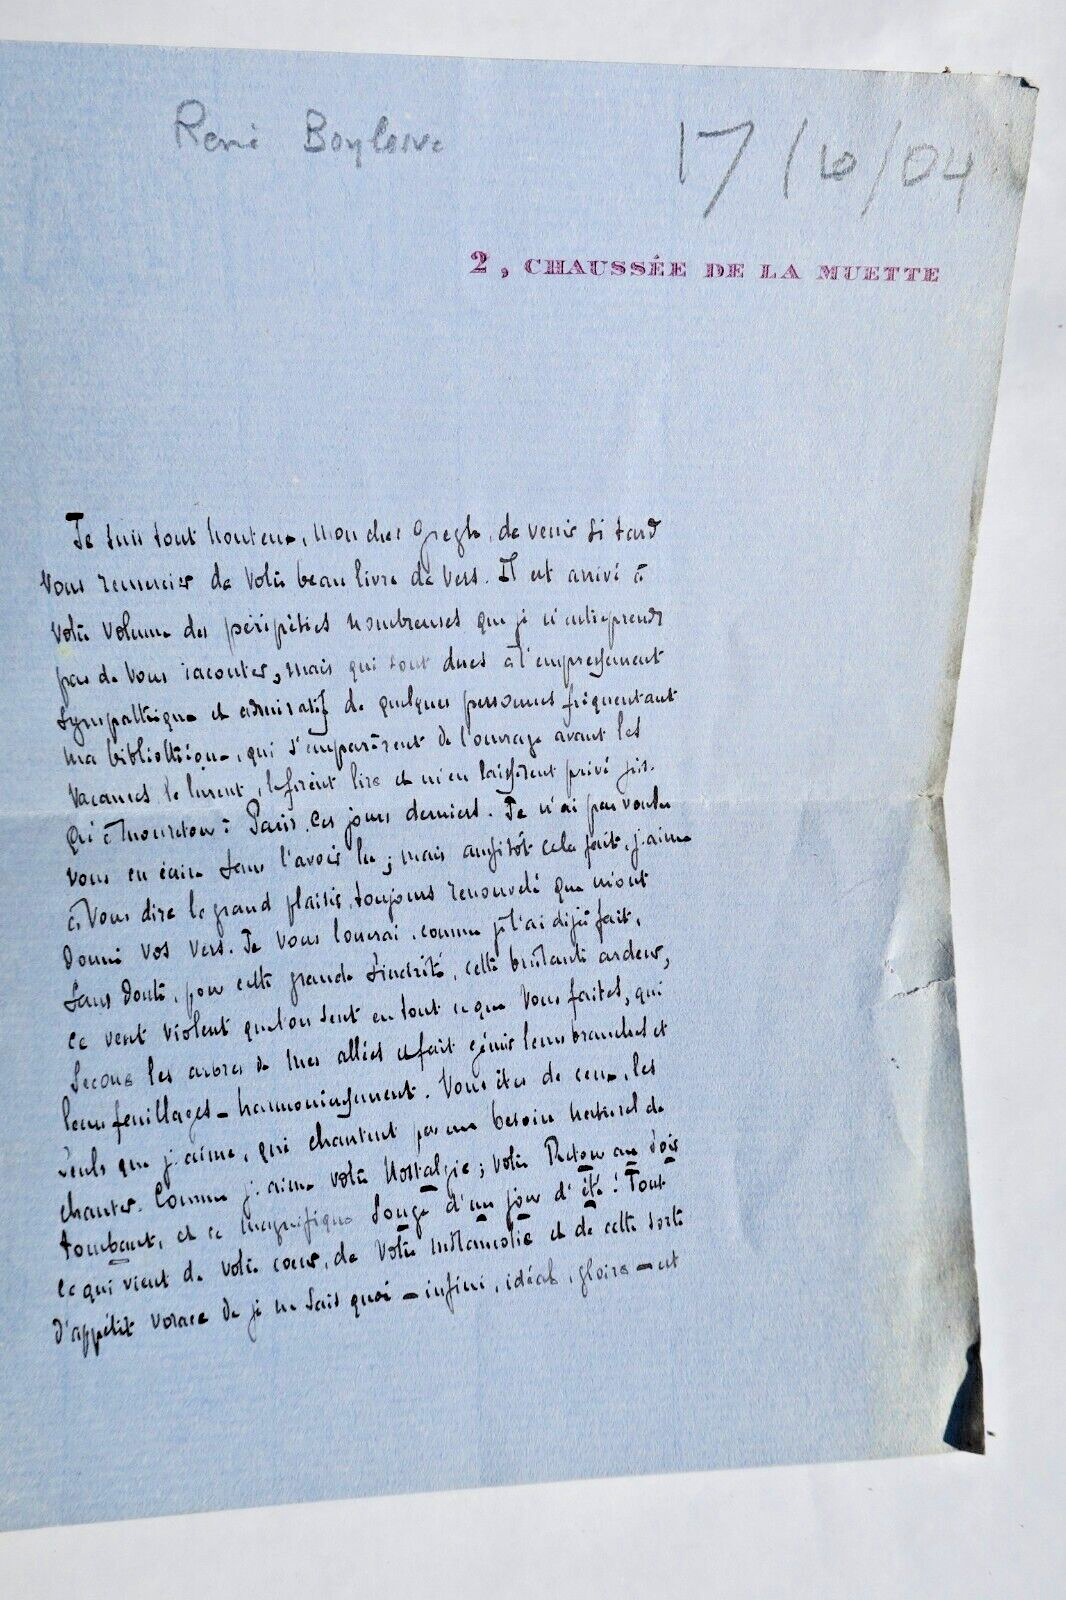 René Boylesve 17/10/04
2, CHAUSSÉE DE LA MUETTE
Je suis tout honteux, mon cher Gregh, de venir si tard
vous remercier de votre beau livre de vers. Il est arrivé à
votre volume des péripéties nombreuses que je n'entreprends
pas de vous raconter, mais qui sont dues à l'empressement
sympathique et admiratif de quelques personnes fréquentant
ma bibliothèque, qui s'emparèrent de l'ouvrage avant les
vacances, le lurent, le firent lire et m'en laissèrent privé jus-
qu'à mon retour à Paris, ces jours derniers. Je n'ai pas voulu
vous en écrire sans l'avoir lu ; mais aussitôt cela fait, j'aime
à vous dire le grand plaisir toujours renouvelé que m'ont
donné vos vers. Je vous louerai, comme je l'ai déjà fait,
sans doute, pour cette grande sincérité, cette brûlante ardeur,
ce vent violent que l'on sent en tout ce que vous faites, qui
secoue les arbres de mes allées et fait gémir leurs branches et
leurs feuillages – harmonieusement. Vous êtes de ceux, les
seuls que j'aime, qui chantent par un besoin naturel de
chanter. Comme j'aime votre Nostalgie ; votre Retour au soir
tombant, et ce magnifique Songe d'un jour d'été ! Tout
ce qui vient de votre cœur, de votre mélancolie et de cette sorte
d'appétit vorace de je ne sais quoi – infini, idéal, gloire – est